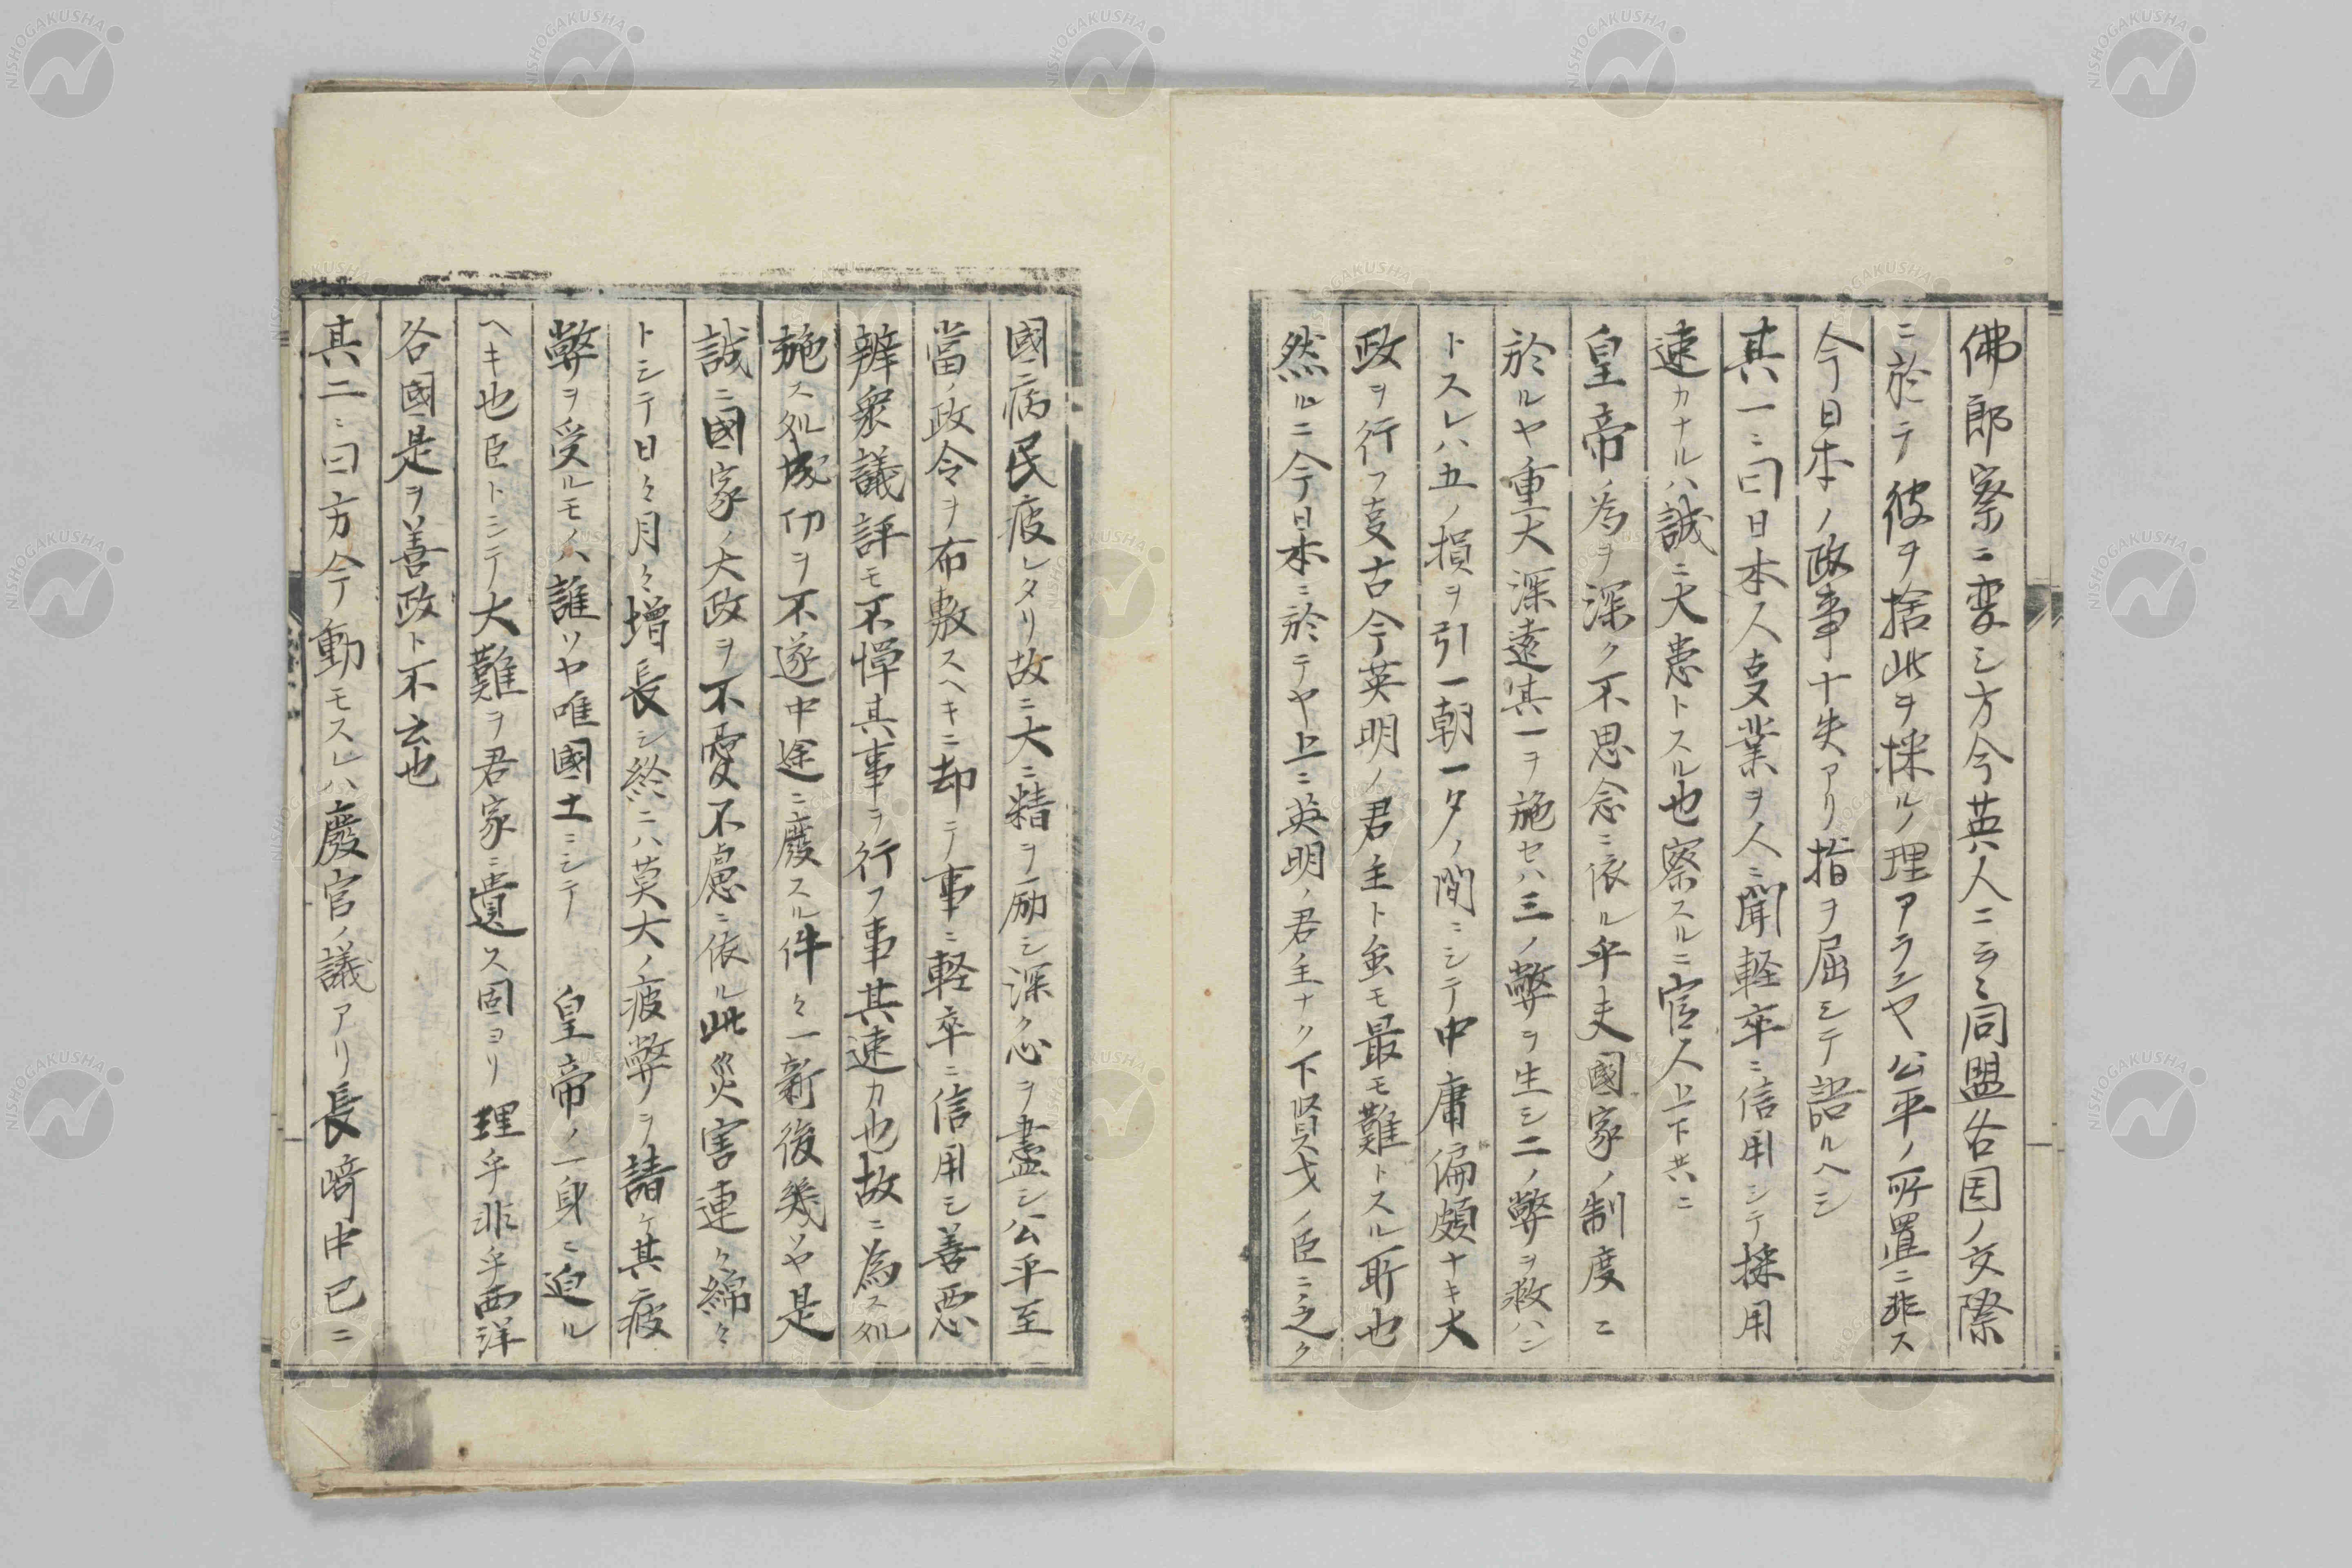 佛郎察ニ変シ方今英人ニ云ミ同盟各国ノ交際
ニ於テ彼ヲ捨此ヲ採ルノ理アランヤ公平ノ所置ニ非ス
今日本ノ政事十失アリ指ヲ屈シテ語ルヘシ
其一ニ曰日本人支業ヲ人ニ聞軽卒ニ信用シテ採用
速カナルハ誠ニ大患トスル也察スルニ官人上下共ニ
皇帝ノ為ヲ深ク不思念ニ依ル乎夫國家ノ制度ニ
於ルヤ重大深遠其一ヲ施セハ三ノ弊ヲ生シ二ノ弊ヲ救ハン
トスレハ五ノ損ヲ引一朝一夕ノ間ニシテ中庸偏頗ナキ大
政ヲ行フ支古今英明ノ君主ト虽モ最モ難トスル所也
然ルニ今日本ニ於テヤ上ニ英明ノ君主ナク下賢才ノ臣ニ之ク
國病民疲レタリ故ニ大ニ精ヲ励シ深ク心ヲ盡シ公平至
當ノ政令ヲ布敷スヘキニ却テ事ニ軽卒ニ信用シ善悪
辨衆議評モ不憚其事ヲ行フ事其速カ也故ニ為ス処
施ス処成功ヲ不遂中途ニ廢スル件々一新後幾ソヤ是
誠ニ國家ノ大政ヲ不憂不慮ニ依ル此災害連々綿々
トシテ日々月々増長シ終ニハ莫大ノ疲弊ヲ請ケ其疲
弊ヲ受ルモノハ誰ソヤ唯國土ニシテ 皇帝ノ一身ニ迫ル
ヘキ也臣トシテ大難ヲ君家ニ遺ス固ヨリ理乎非乎西洋
各國是ヲ善政ト不云也
其二ニ曰方今動モスレハ廢官ノ議アリ長崎中已ニ
NISHOGAKUSHA